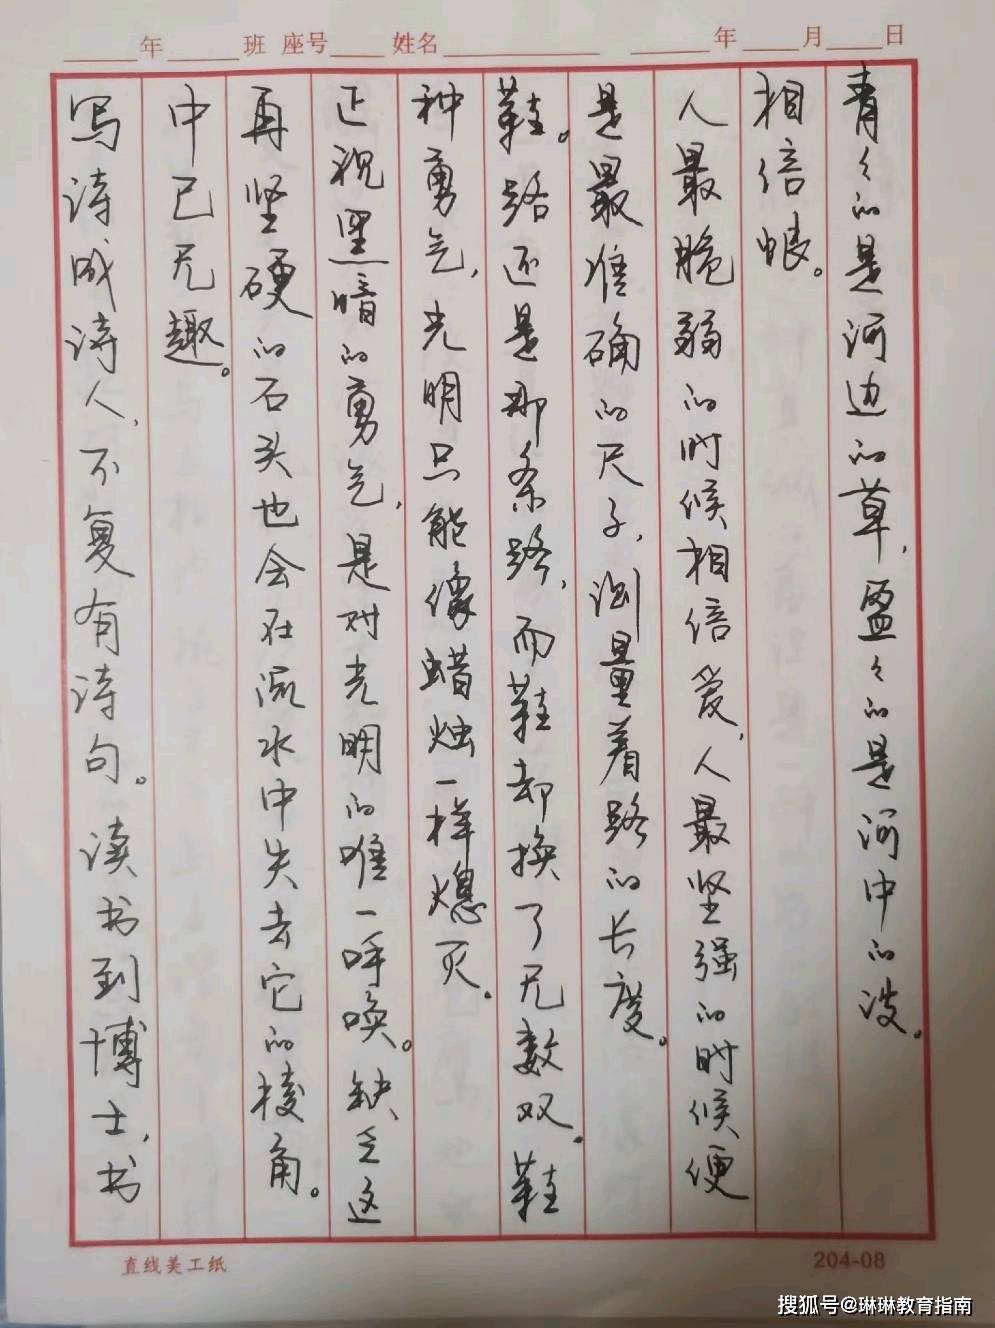 ____年____班 座号____姓名________ ____年____月____日
写诗成诗人，不复有诗句。读书到博士，书
中已无趣。
再坚硬的石头也会在流水中失去它的棱角。
正视黑暗的勇气，是对光明的唯一呼唤。缺乏这
种勇气，光明只能像蜡烛一样熄灭。
鞋。路还是那条路，而鞋却换了无数双。鞋
是最准确的尺子，测量着路的长度。
人最脆弱的时候相信爱，人最坚强的时候便
相信恨。
青々的是河边的草，盈々的是河中的波。
直线美工纸
204-08
搜狐号@琳琳教育指南